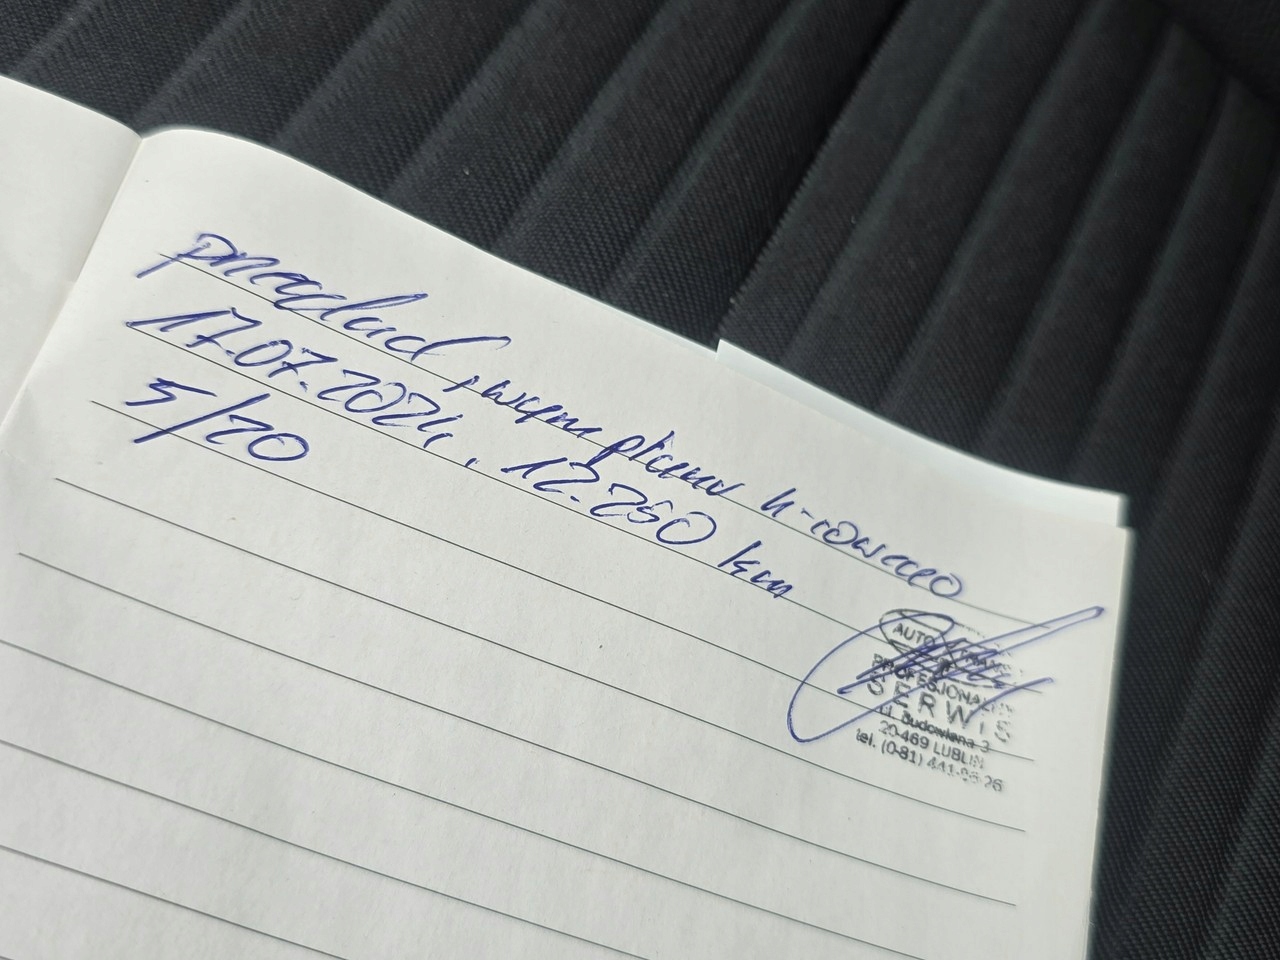 przegląd, wym płynu h-cowego
17.07.2024, 12.250 km
5/20
AUTO
PROFESJONALNY
SERWIS
ul. Budowlana 3
20-469 LUBLIN
tel. (0-81) 441-26-26